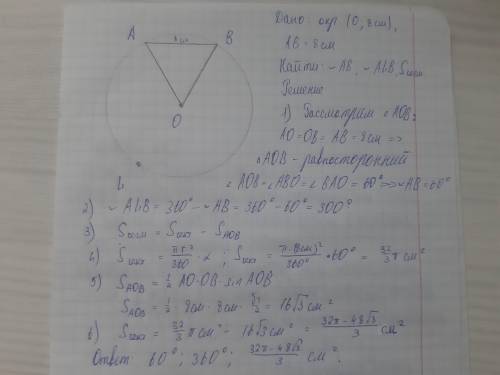 Дано: окр (O, 8см),
A 8см B
AB = 8см
Найти: ◡AB, ◡ALB, Sсегм
Решение
1) Рассмотрим △AOB:
O
AO = OB = AB = 8см =>
△AOB - равносторонний
L
∠AOB = ∠ABO = ∠BAO = 60° => ◡AB = 60°
2) ◡ALB = 360° - ◡AB = 360° - 60° = 300°
3) Sсегм = Sсект - SAOB
4) Sсект = πr²/360 · α ; Sсект = π·(8см)²/360° · 60° = 32/3 π см²
5) SAOB = 1/2 AO·OB·sin AOB
SAOB = 1/2 · 8см · 8см · √3/2 = 16√3 см²
6) Sсегм = 32/3 π см² - 16√3 см² = 32π - 48√3/3 см²
Ответ: 60°; 360°; 32π - 48√3/3 см².